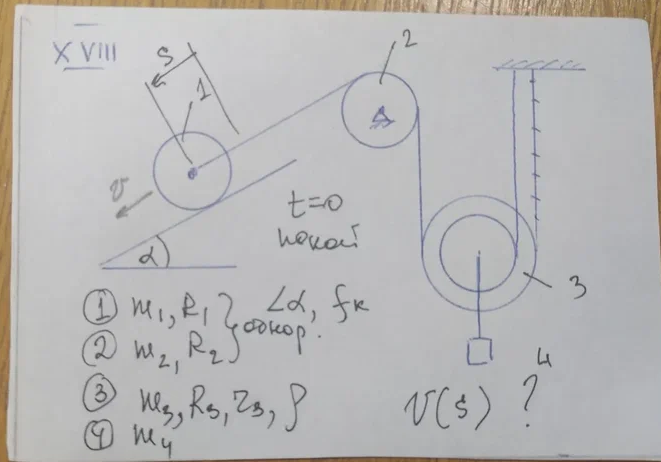 XVIII
S
1
2
v
α
t=0
покой
3
4
① m₁, R₁ } ∠α, fк
② m₂, R₂ } однор.
③ m₃, R₃, r₃, ρ
④ m₄
v(s) ?